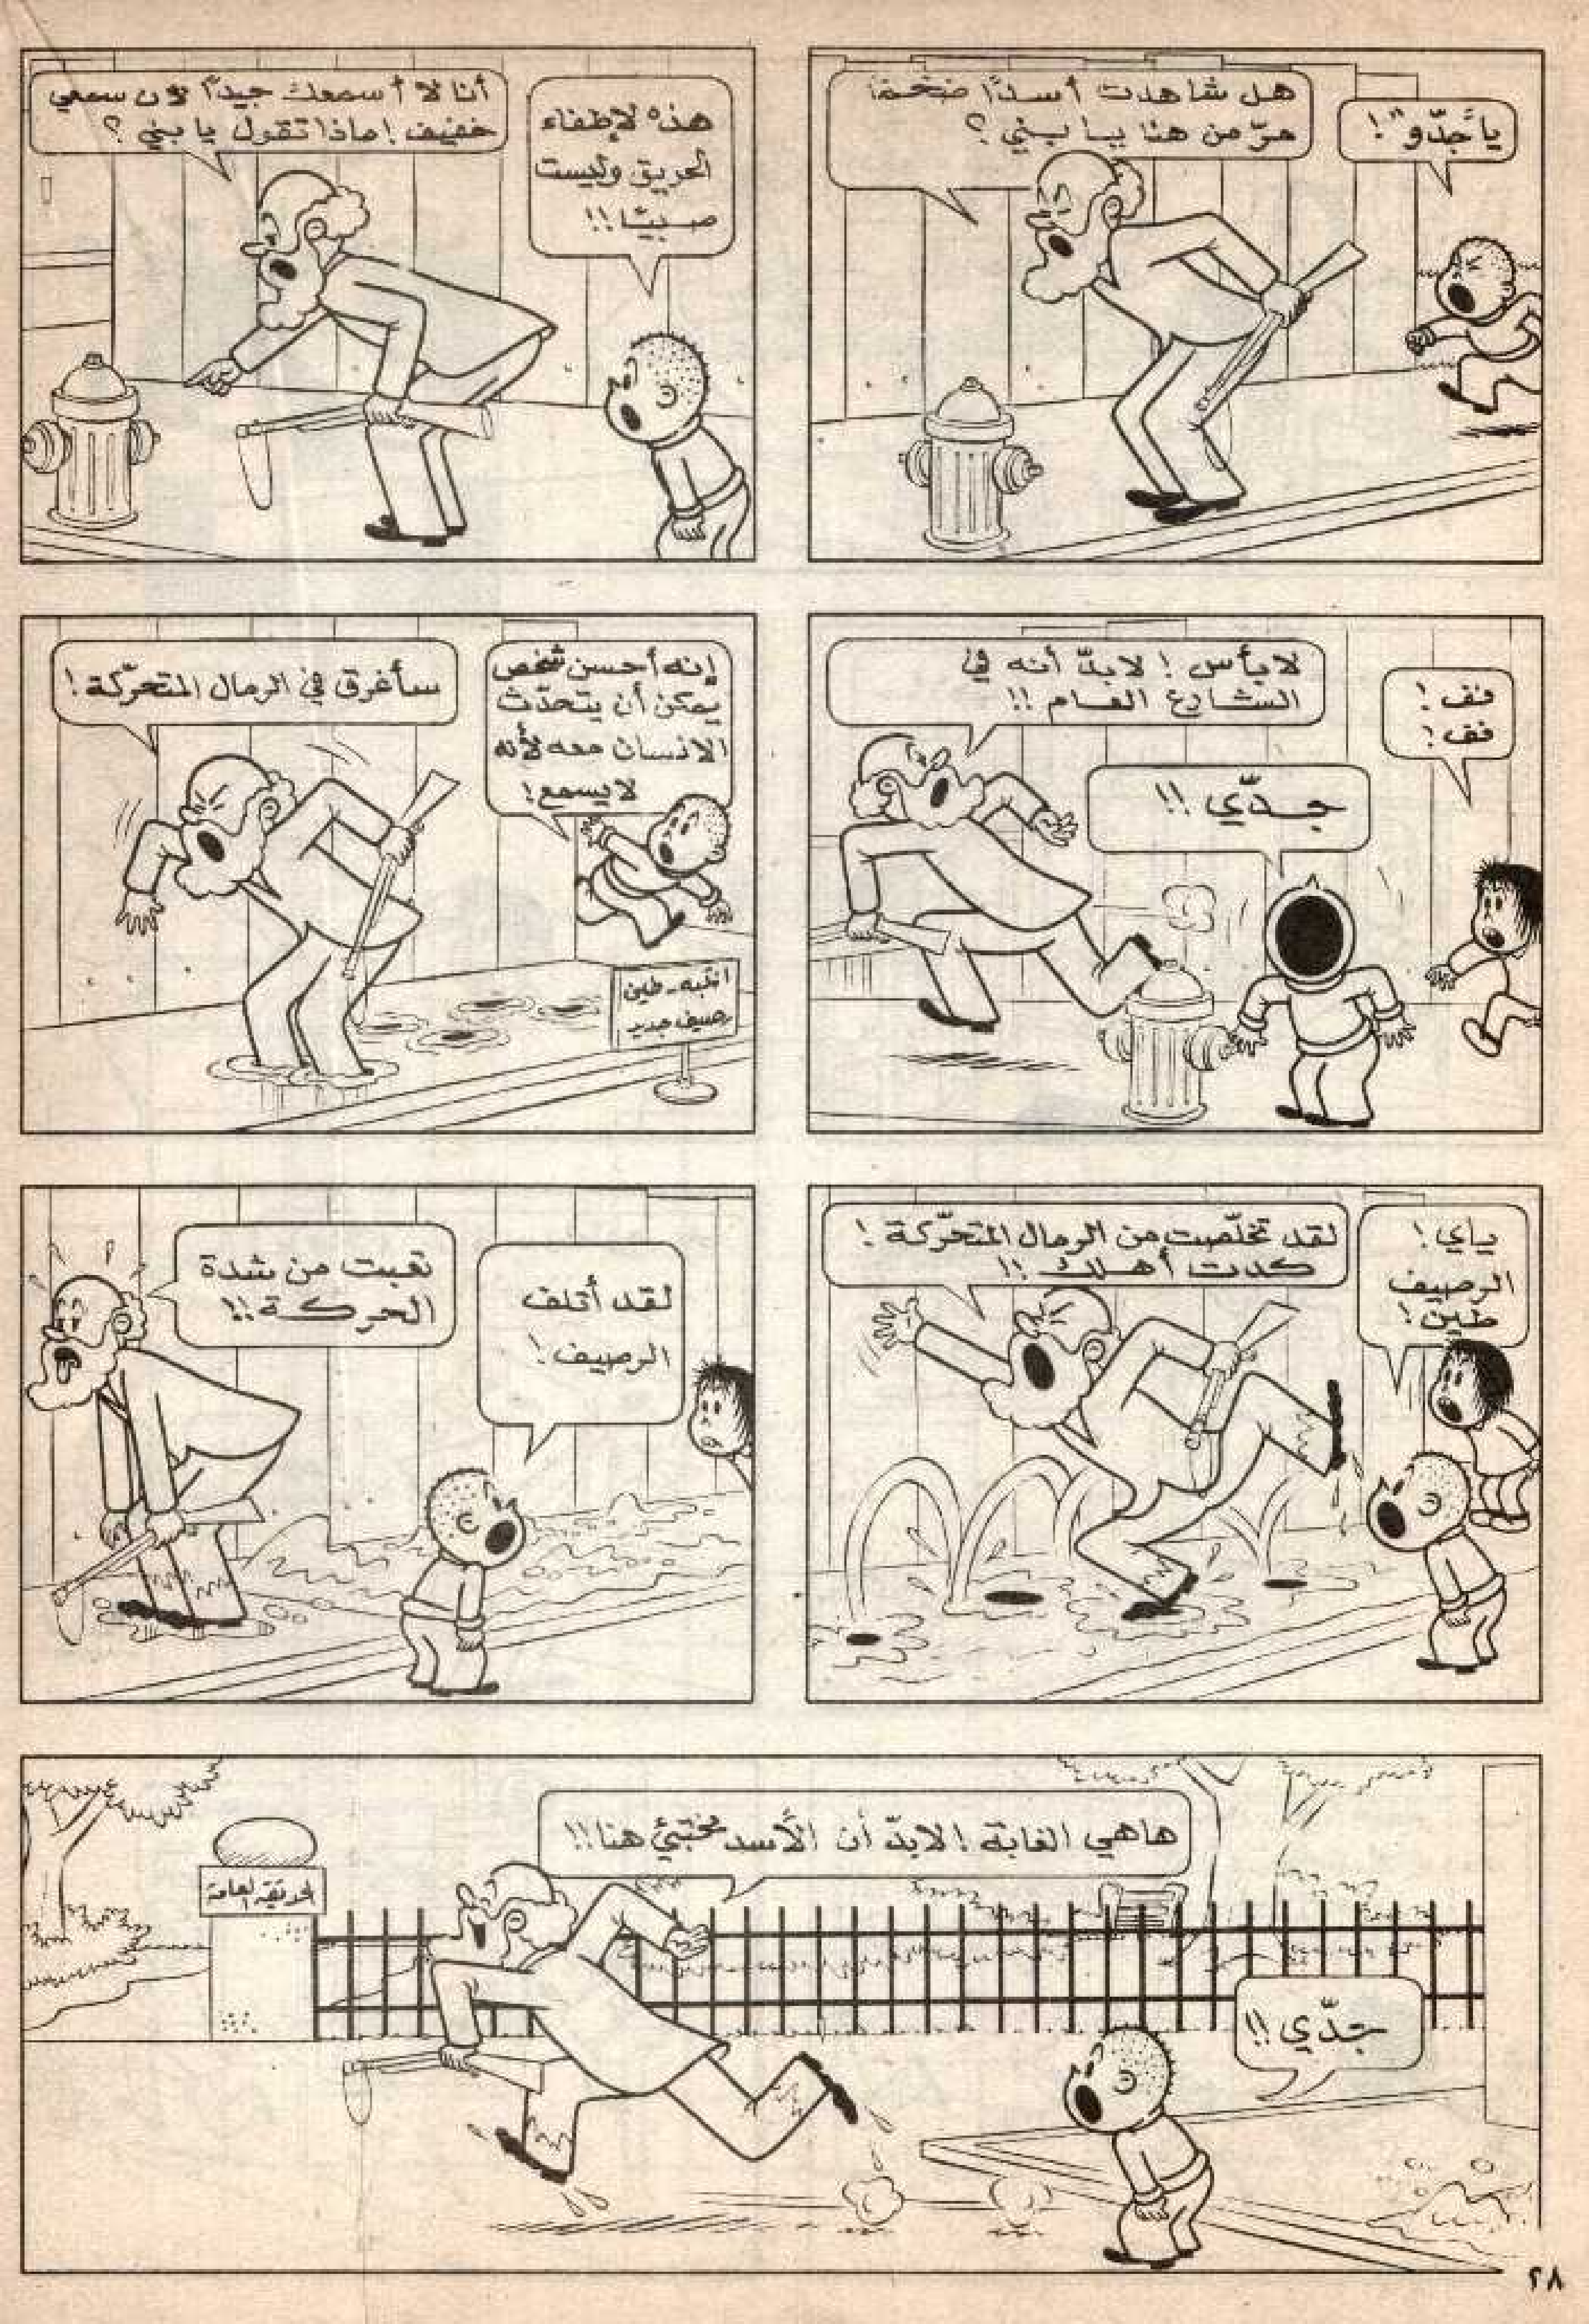 يا "جدّو"!
هل شاهدت أسداً ضخماً
مرّ من هنا يا بني؟
هذه لإطفاء
الحريق وليست
صبيّا!!
أنا لا أسمعك جيداً لأن سمعي
خفيف! ماذا تقول يا بني؟
قف!
قف!
لا بأس! لابدّ أنه في
الشارع العام!!
جدّي!!
إنه أحسن شخص
يمكن أن يتحدّث
الانسان معه لأنه
لا يسمع!
سأغرق في الرمال المتحرّكة!
انتبه - طين
رصيف جديد
ياي!
الرصيف
طين!
لقد تخلّصت من الرمال المتحرّكة!
كدت أهلك!!
لقد أتلف
الرصيف!
تعبت من شدة
الحركة!!
هاهي الغابة! لابدّ أن الأسد مختبئ هنا!!
الحديقة العامة
جدّي!!
٢٨